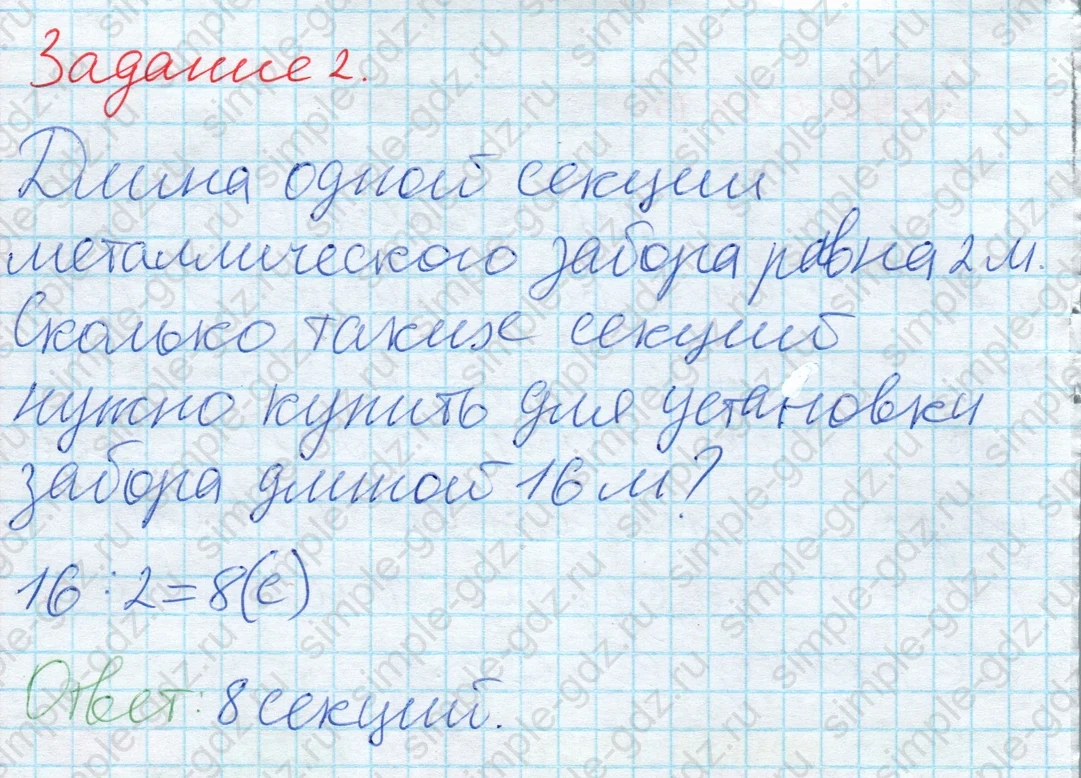 Задание 2.
Длина одной секции
металлического забора равна 2 м.
Сколько таких секций
нужно купить для установки
забора длиной 16 м?
16 : 2 = 8 (с)
Ответ: 8 секций.
simple-gdz.ru